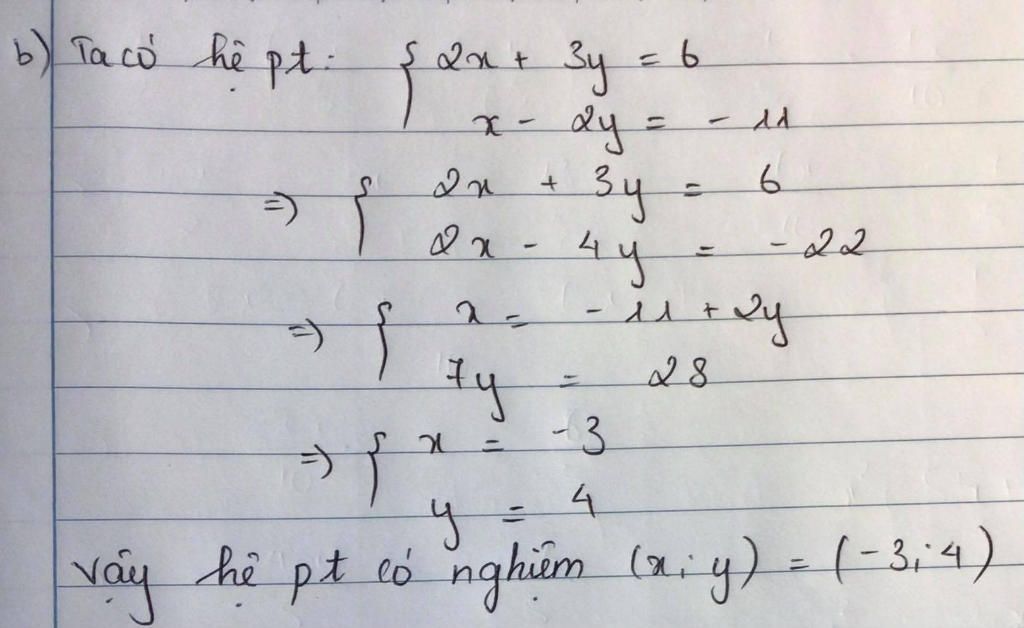 b) Ta có hệ pt: { 2x + 3y = 6
x - 2y = - 11
=> { 2x + 3y = 6
2x - 4y = - 22
=> { x = - 11 + 2y
7y = 28
=> { x = -3
y = 4
Vậy hệ pt có nghiệm (x; y) = (-3; 4)